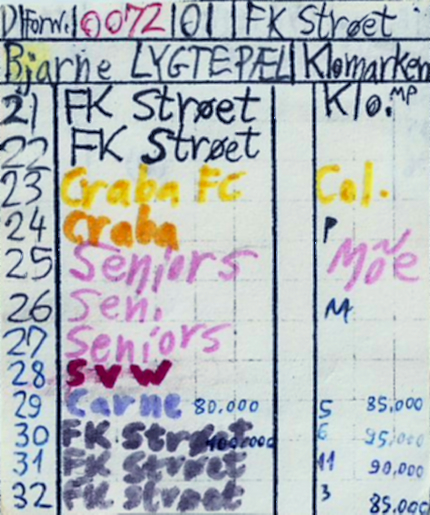 D/Forw. 0072 01 FK Strøet
Bjarne LYGTEPÆL Klomarken
21 FK Strøet Klo. MP
22 FK Strøet
23 Craba FC Col.
24 Craba P
25 Seniors
26 Sen. M
27 Seniors
28 SVW
29 Carne 80.000 5 85.000
30 FK Strøet 400.000 6 95.000
31 FK Strøet 11 90,000
32 FK Strøet 3 85.000